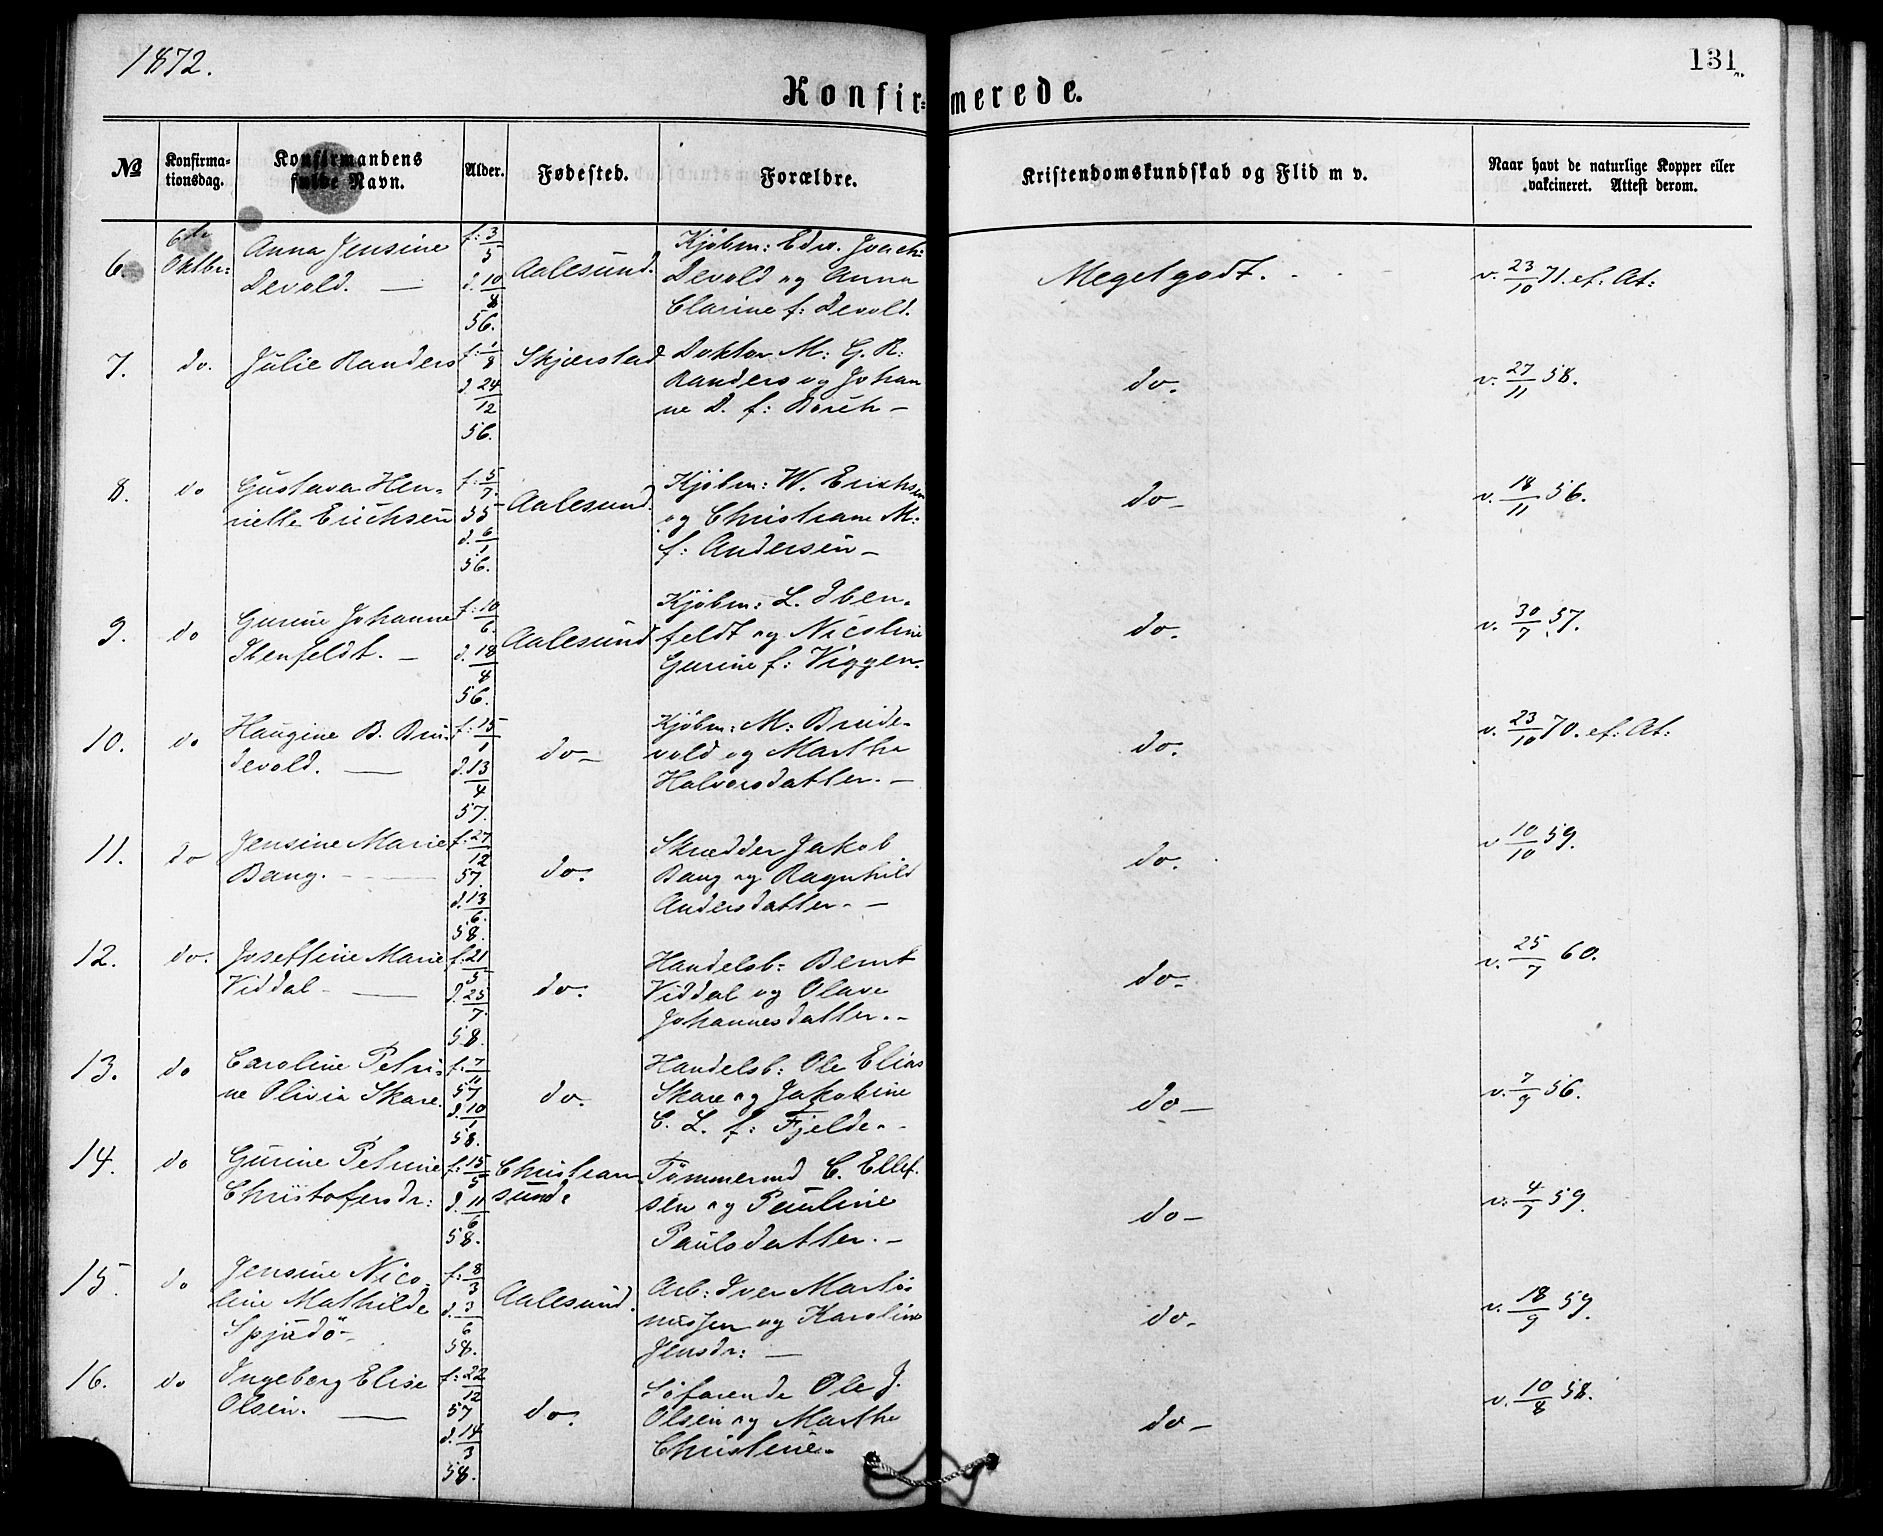 1872.
131
Konfirmerede.
№
Konfirma-
tionsdag.
Konfirmandens
fulde Navn.
Alder.
Fødested.
Forældre.
Kristendomskundskab og Flid m v.
Naar havt de naturlige Kopper eller
vakcineret. Attest derom.
6.
6te
Oktbr:
Anna Jensine
Devold. —
f: 3/5
d. 10/8
56.
Aalesund.
Kjøbm: Edv. Joach:
Devold og Anna
Clarine f: Devold.
Megetgodt.
v. 23/10 71. ef: At:
7.
do.
Julie Randers
f: 1/8
d. 24/12
56.
Skjærstad
Doktor M: G. R:
Randers og Johan
ne D. f:
do.
v. 27/11 58.
8.
do
Gustava Hen-
riette Erichsen
f: 5/7
55
d. 6/1
56.
Aalesund.
Kjøbm: W. Erichsen
og Christiane M:
f: Andersen —
do —
v. 18/11 56.
9.
do
Gurine Johanne
Ibenfeldt. —
f: 10/6
d. 18/8
56.
Aalesund
Kjøbm: L. Iben-
feldt og Nicoline
Gurine f: Viggen.
do.
v. 30/7 57.
10.
do
Haugine B. Bru-
devold. —
f: 15/1
d. 13/4
57.
do —
Kjøbm: M: Brude-
vold og Martha
Halvorsdatter. —
do.
v. 23/10 70. ef: At:
11.
do
Jensine Marie
Bang. —
f: 27/12
57
d. 13/6
58.
do.
Skrædder Jakob
Bang og Ragnhild
Andersdatter. —
do.
v 10/10 59.
12.
do.
Joseffine Marie
Viddal —
f: 21/5
d. 25/7
58.
do.
Handelsb: Bernt
Viddal og Olave
Johannesdatter. —
do —
v. 25/7 60.
13.
do
Caroline Petri-
ne Olivia Skare.
f: 7/11
57
d. 10/1
58.
do.
Handelsb: Ole Elias
Skare og Jakobine
C. L. f: Fjelde —
do —
v. 7/9 56.
14.
do
Gurine Petrine
Christofersdr:
f: 15/5
d. 11/6
58.
Christian
sund.
Tømmermd C. Ellef-
sen og Pauline
Paulsdatter. —
do —
v. 4/7 59.
15.
do
Jensine Nico-
line Mathilde
Spjudø —
f: 8/3
d. 3/6
58.
Aalesund.
Arb: Iver Marti-
nussen og Karoline
Jensdr: —
do —
v. 18/9 59.
16.
do
Ingeborg Elise
Olsen. —
f: 22/12
57
d. 14/3
58.
do.
Søfarende Ole J.
Olsen og Marthe
Christine.
do —
v. 10/8 58.